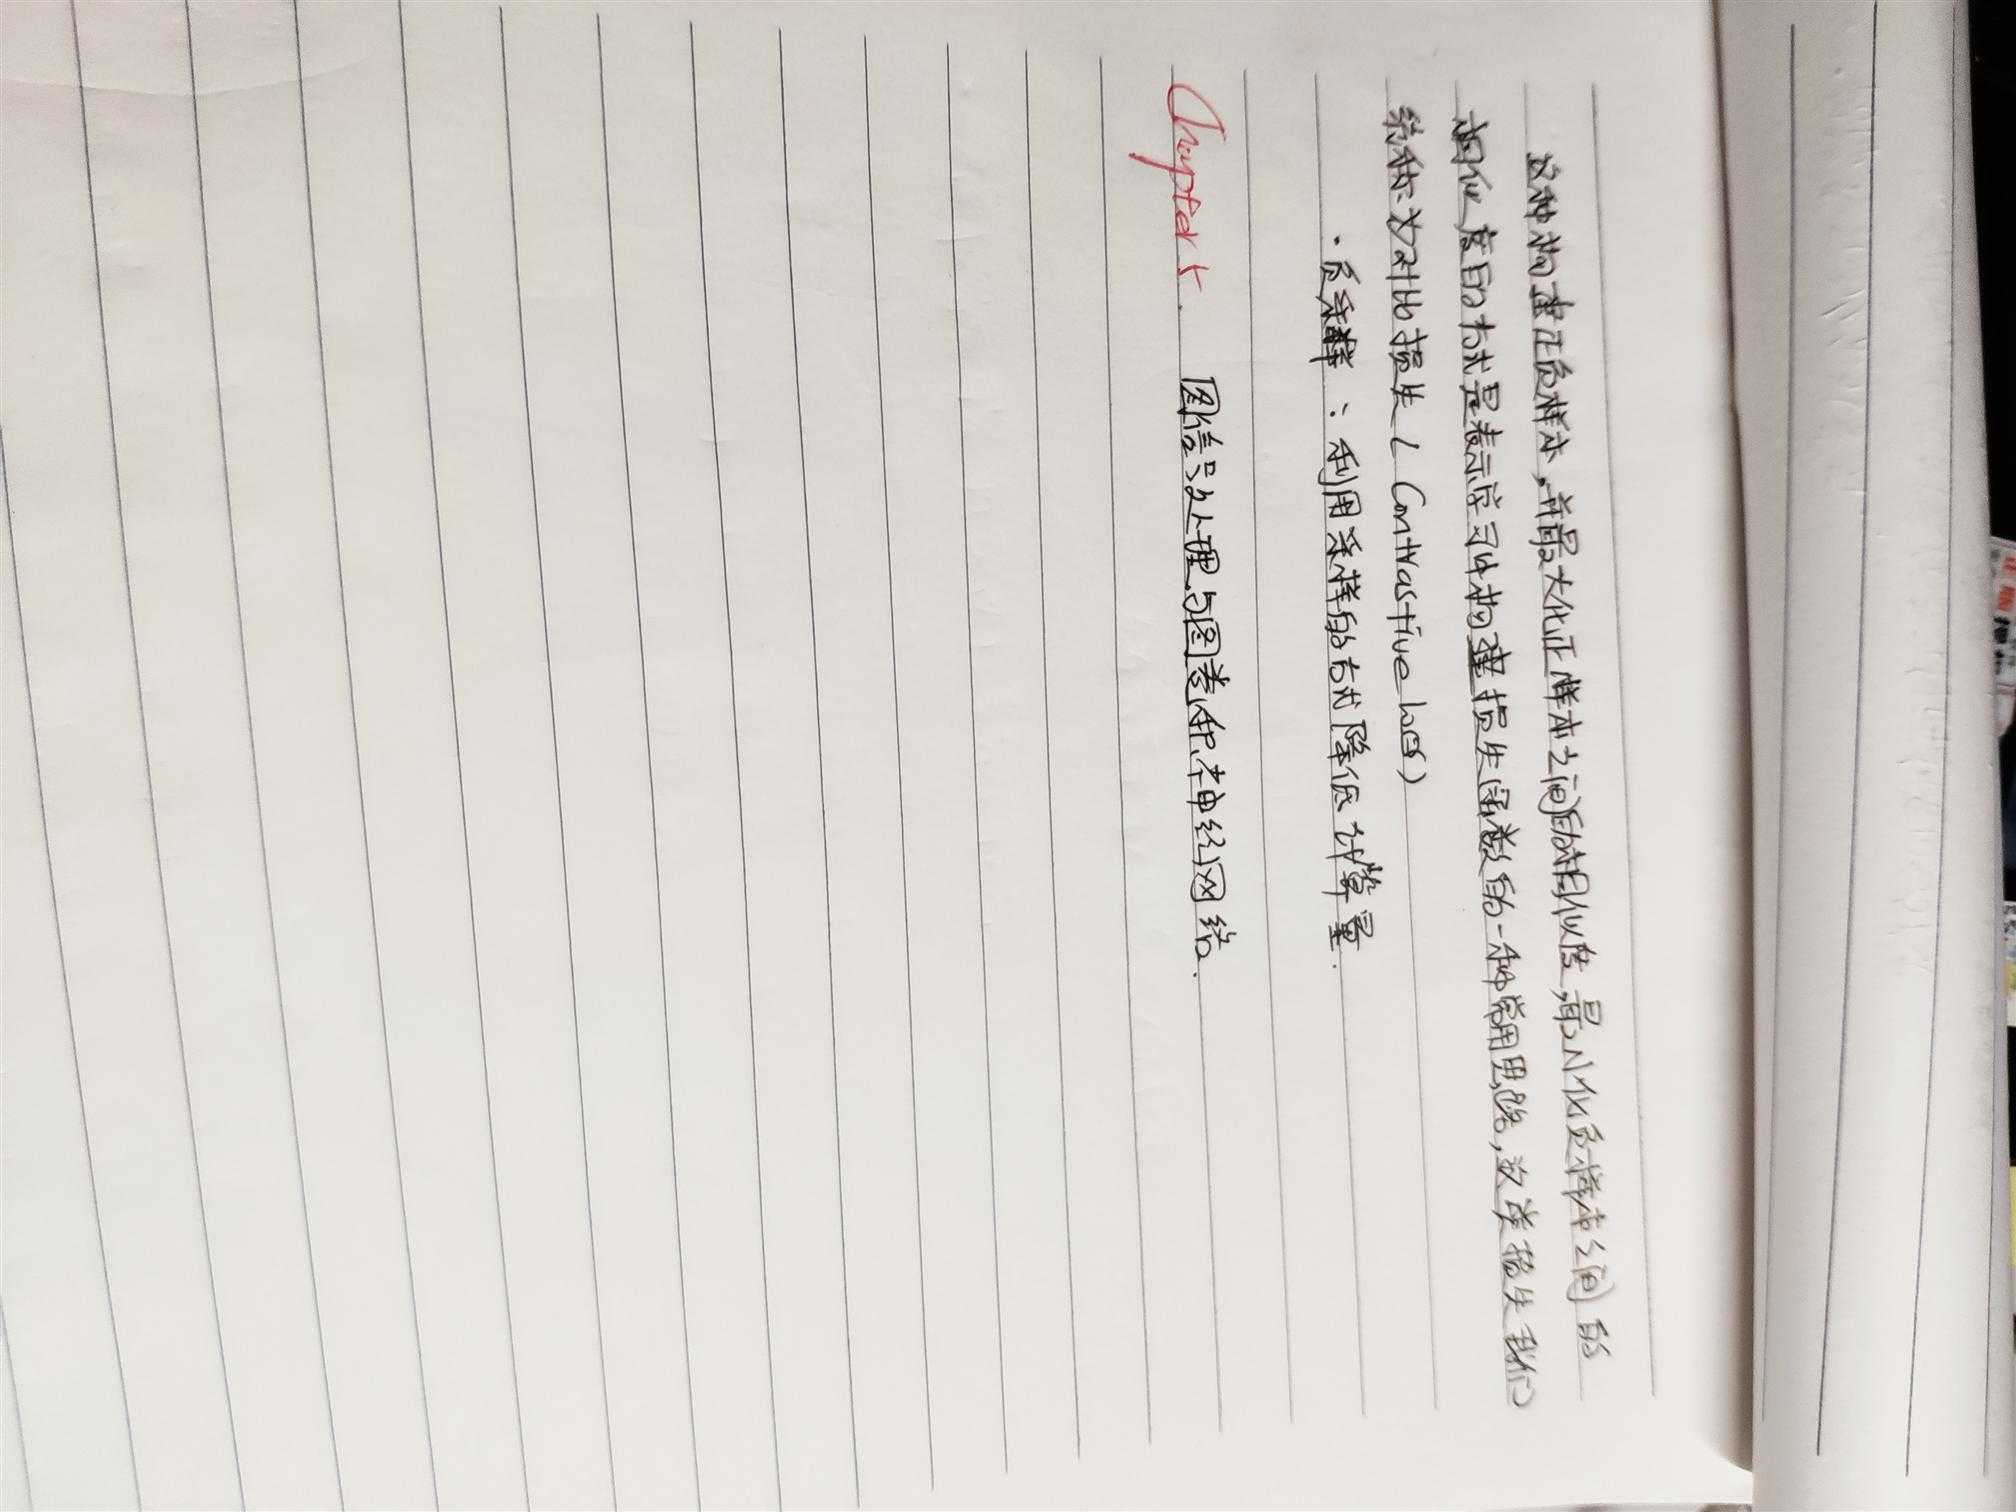 这种构建正负样本，并最大化正样本之间的相似度，最小化负样本之间的
相似度的方式是表示学习中构建损失函数的一种常用思路，这类损失我们
统称为对比损失（Contrastive loss）
·负采样：利用采样的方式降低计算量.
Chapter 5. 图信号处理与图卷积神经网络.